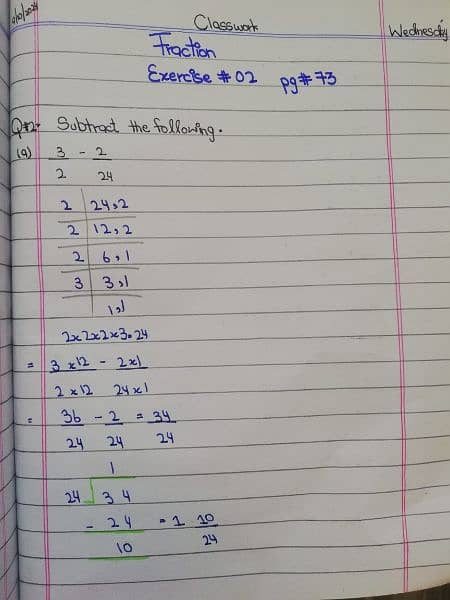 Classwork
Wednesday
Fraction
Exercise # 02 pg # 73
Q#2:- Subtract the following.
(a) 3 - 2
2 24
2 | 24,2
2 | 12,2
2 | 6,1
3 | 3,1
1,1
2x2x2x3=24
= 3 x12 - 2x1
2 x12 24x1
= 36 - 2 = 34
24 24 24
1
24 34
- 24 = 1 10
10 24